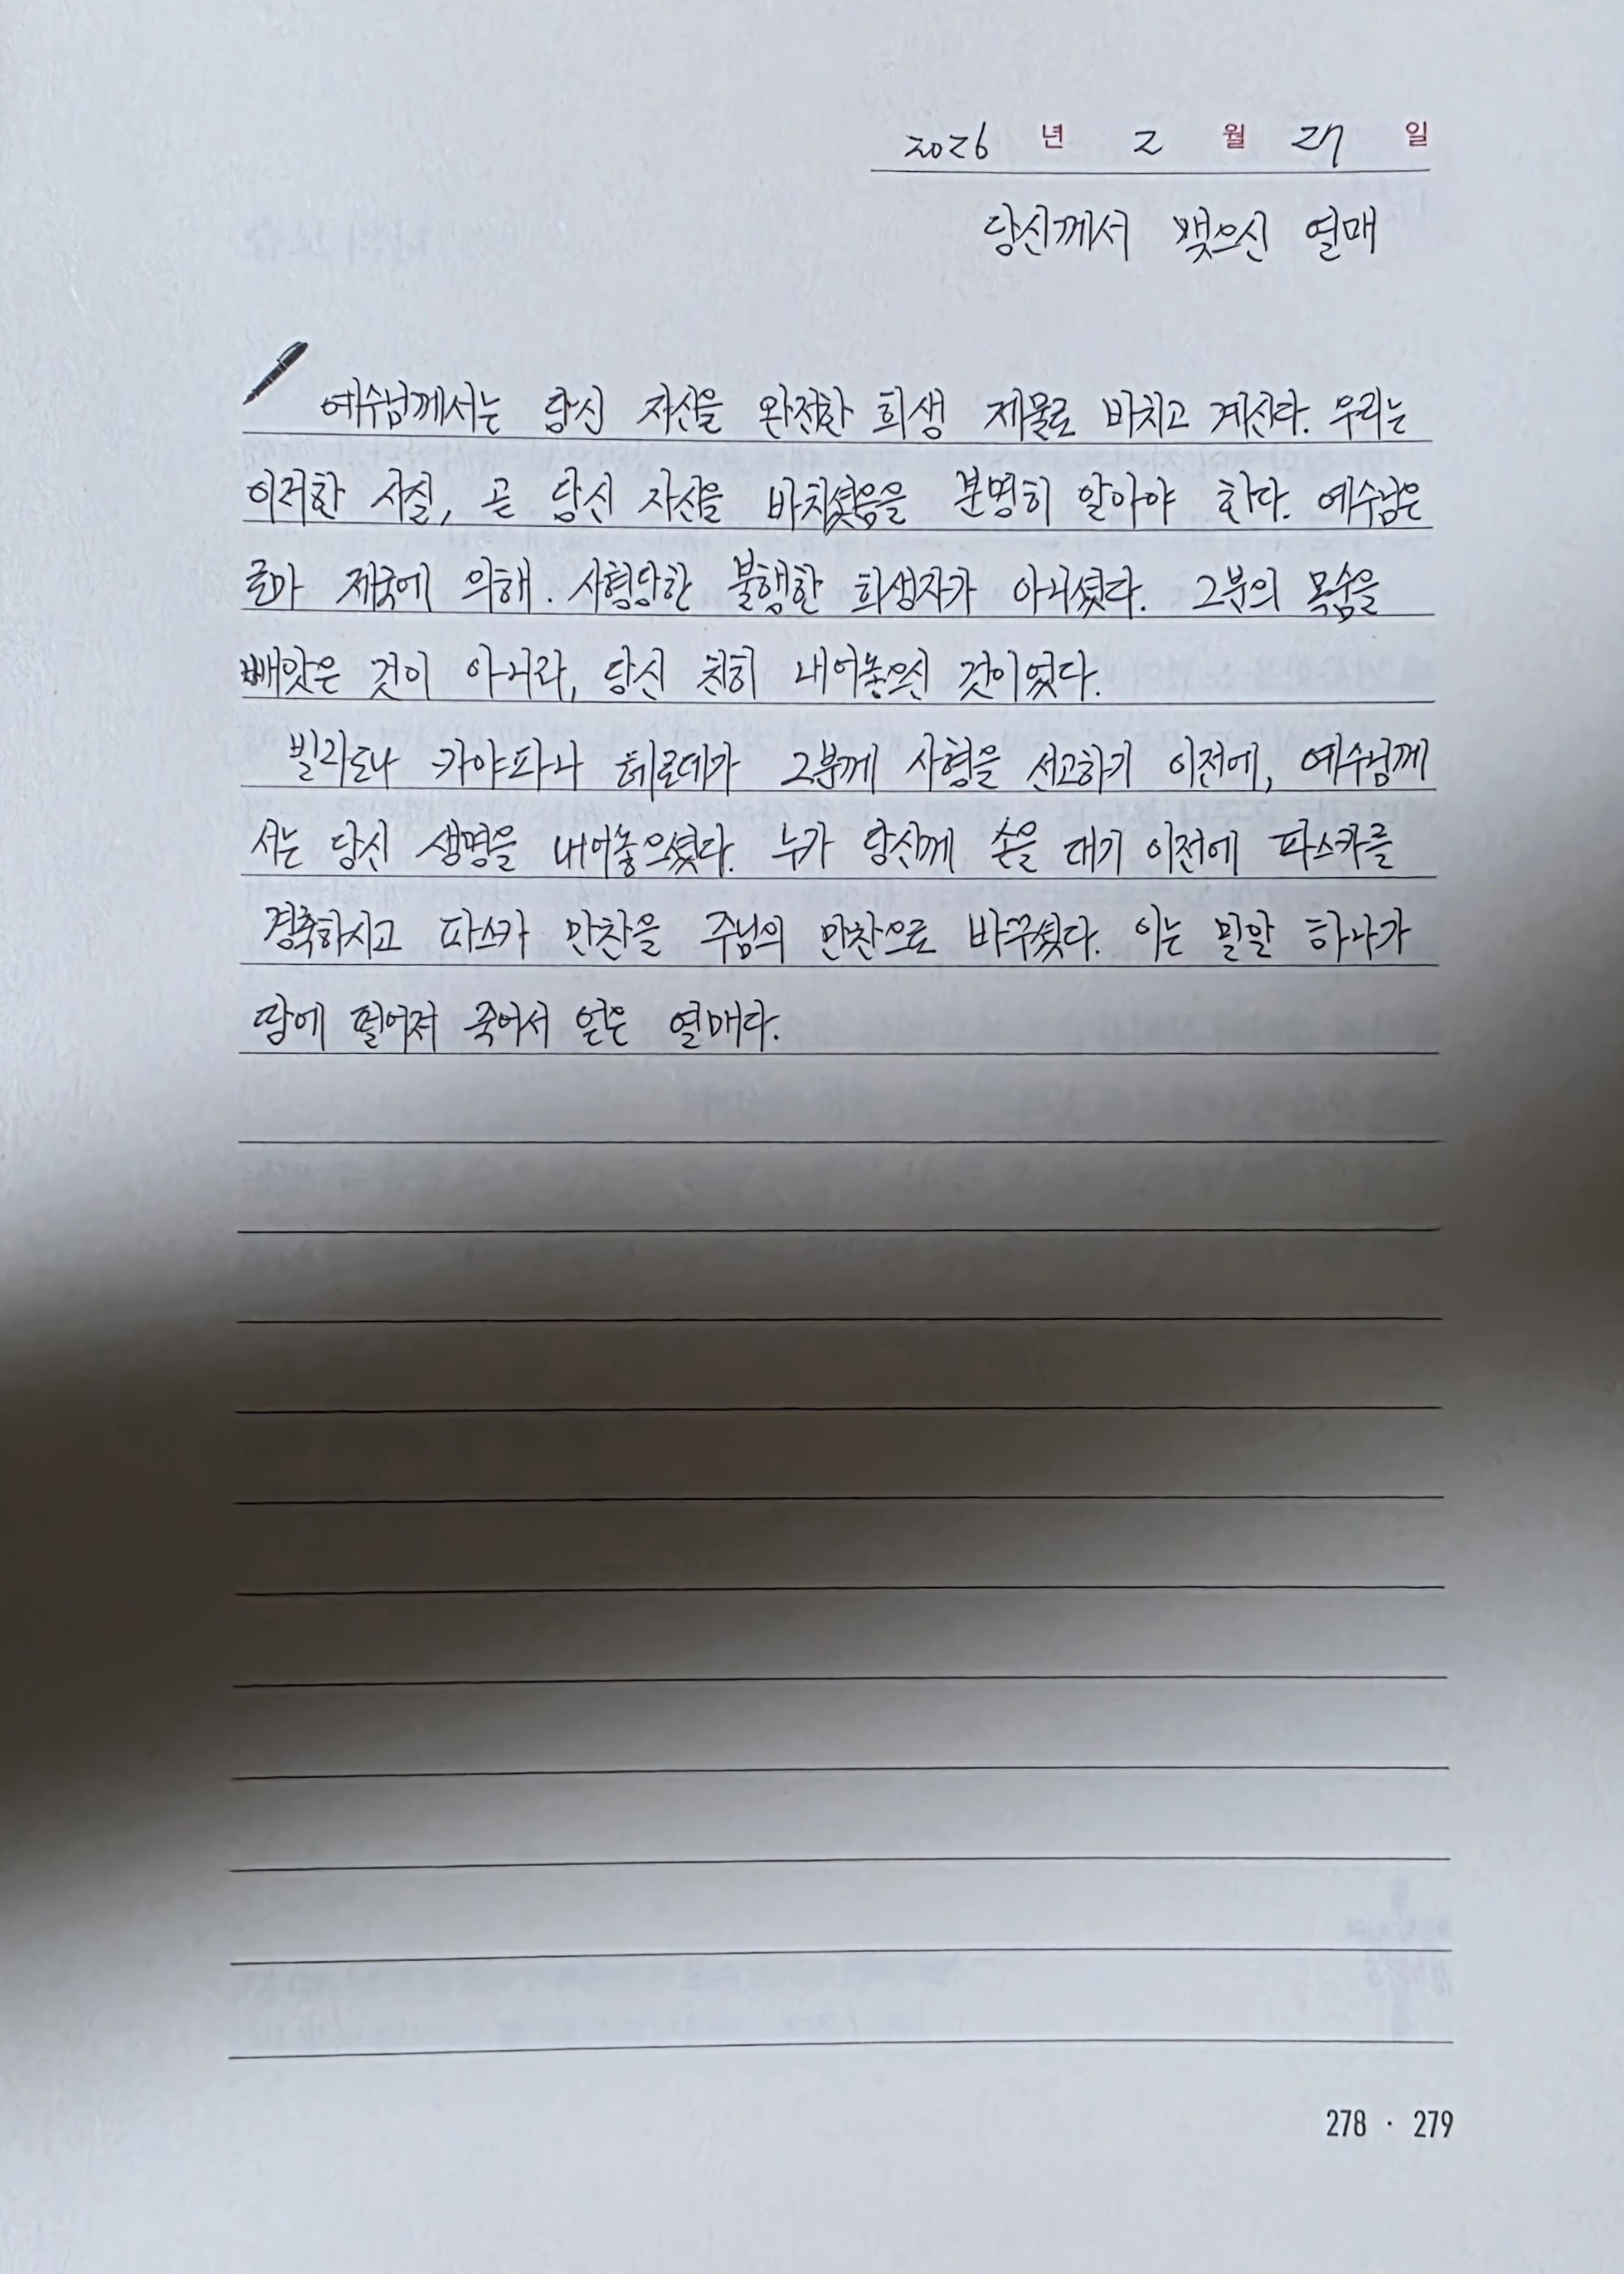 2026 년 2 월 27 일
당신께서 맺으신 열매
예수님께서는 당신 자신을 완전한 희생 제물로 바치고 계신다. 우리는
이러한 사실, 곧 당신 자신을 바치셨음을 분명히 알아야 한다. 예수님은
로마 제국에 의해. 사형당한 불행한 희생자가 아니셨다. 그분의 목숨을
빼앗은 것이 아니라, 당신 친히 내어놓으신 것이었다.
빌라도나 카야파나 헤로데가 그분께 사형을 선고하기 이전에, 예수님께
서는 당신 생명을 내어놓으셨다. 누가 당신께 손을 대기 이전에 파스카를
경축하시고 파스카 만찬을 주님의 만찬으로 바꾸셨다. 이는 밀알 하나가
땅에 떨어져 죽어서 얻은 열매다.
278 · 279